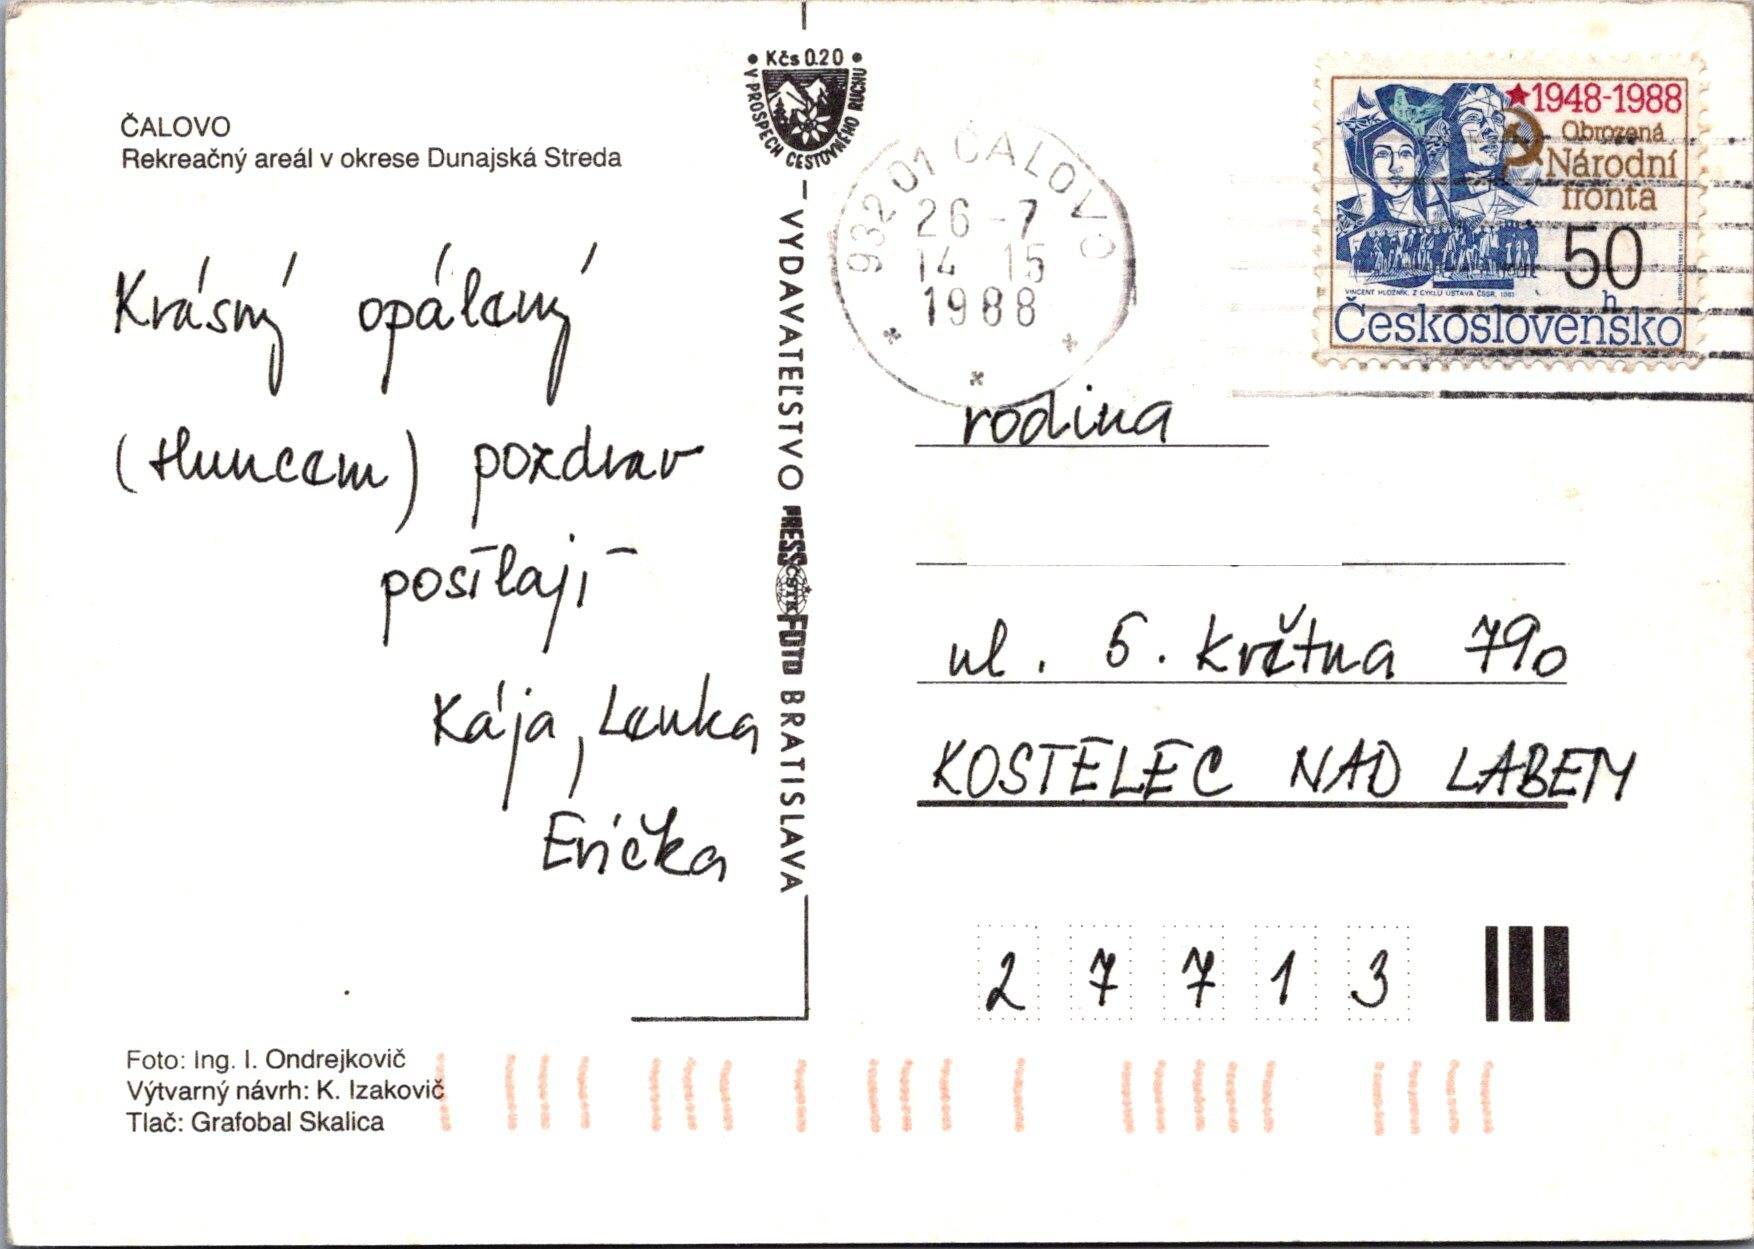 ČALOVO
Rekreačný areál v okrese Dunajská Streda
Krásný opálený
(sluncem) pozdrav
posílají
Kája, Lenka
Evička
Foto: Ing. I. Ondrejkovič
Výtvarný návrh: K. Izakovič
Tlač: Grafobal Skalica
• Kčs 0.20 •
V PROSPECH CESTOVNÉHO RUCHU
VYDAVATEĽSTVO PRESSFOTO BRATISLAVA
ČSTK
932 01 ČALOVO
26 -7
14 15
1988
★1948-1988
Obrozená
Národní
fronta
50
h
VINCENT HLOŽNÍK, Z CYKLU ÚSTAVA ČSSR, 1961
Československo
rodina
ul. 5. května 790
KOSTELEC NAD LABEM
2 7 7 1 3